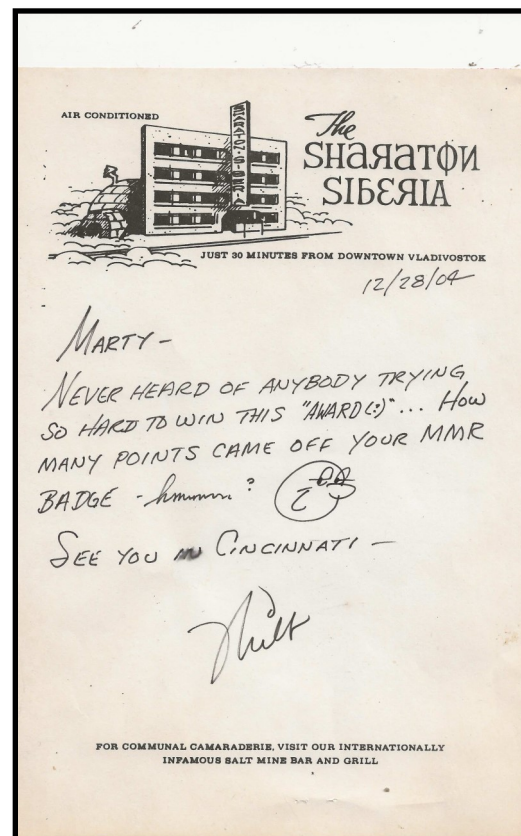 AIR CONDITIONED
SHARATON-SIBERIA
The
SHAЯATФИ
SIBΕЯIA
JUST 30 MINUTES FROM DOWNTOWN VLADIVOSTOK
12/28/04
MARTY-
NEVER HEARD OF ANYBODY TRYING
SO HARD TO WIN THIS "AWARD(:)"... HOW
MANY POINTS CAME OFF YOUR MMR
BADGE - hmmmm?
SEE YOU IN CINCINNATI -
FOR COMMUNAL CAMARADERIE, VISIT OUR INTERNATIONALLY
INFAMOUS SALT MINE BAR AND GRILL